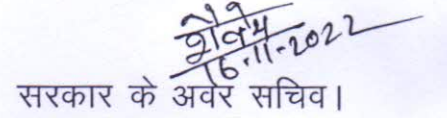 16.11.2022
सरकार के अवर सचिव।